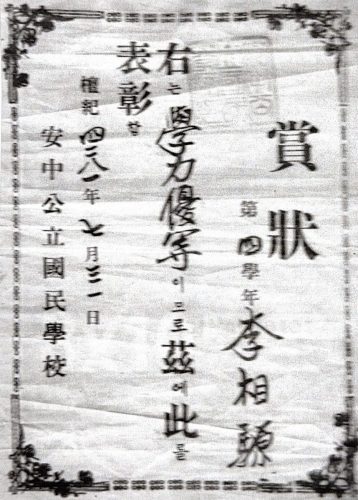 賞狀
第四學年 李相
右는 學力優等이므로 茲에 此를
表彰함
檀紀 四二八一年 七月三一日
安中公立國民學校